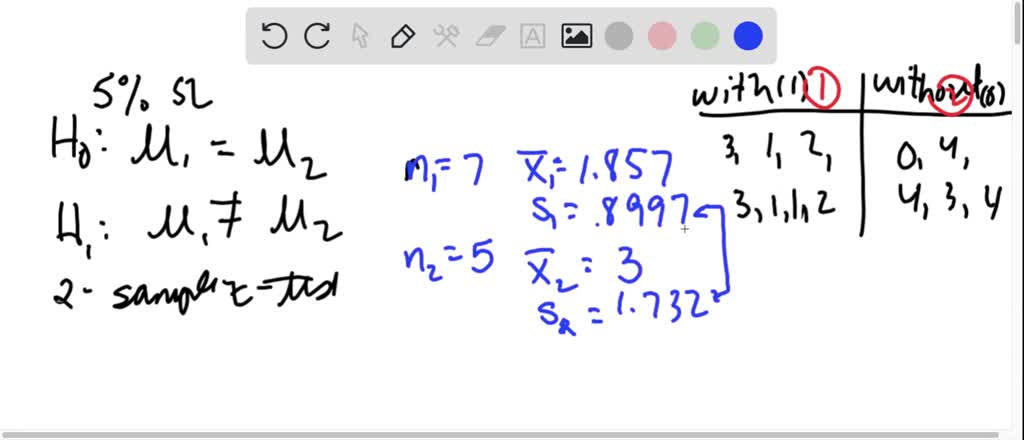 5% SL
H₀: μ₁ = μ₂
H₁: μ₁ ≠ μ₂
2-sample t-test
n₁ = 7 x̄₁ = 1.857
s₁ = .8997
n₂ = 5 x̄₂ = 3
s₂ = 1.732
with(1) 1 without(0) 2
3, 1, 2, 0, 4,
3, 1, 1, 2 4, 3, 4
A